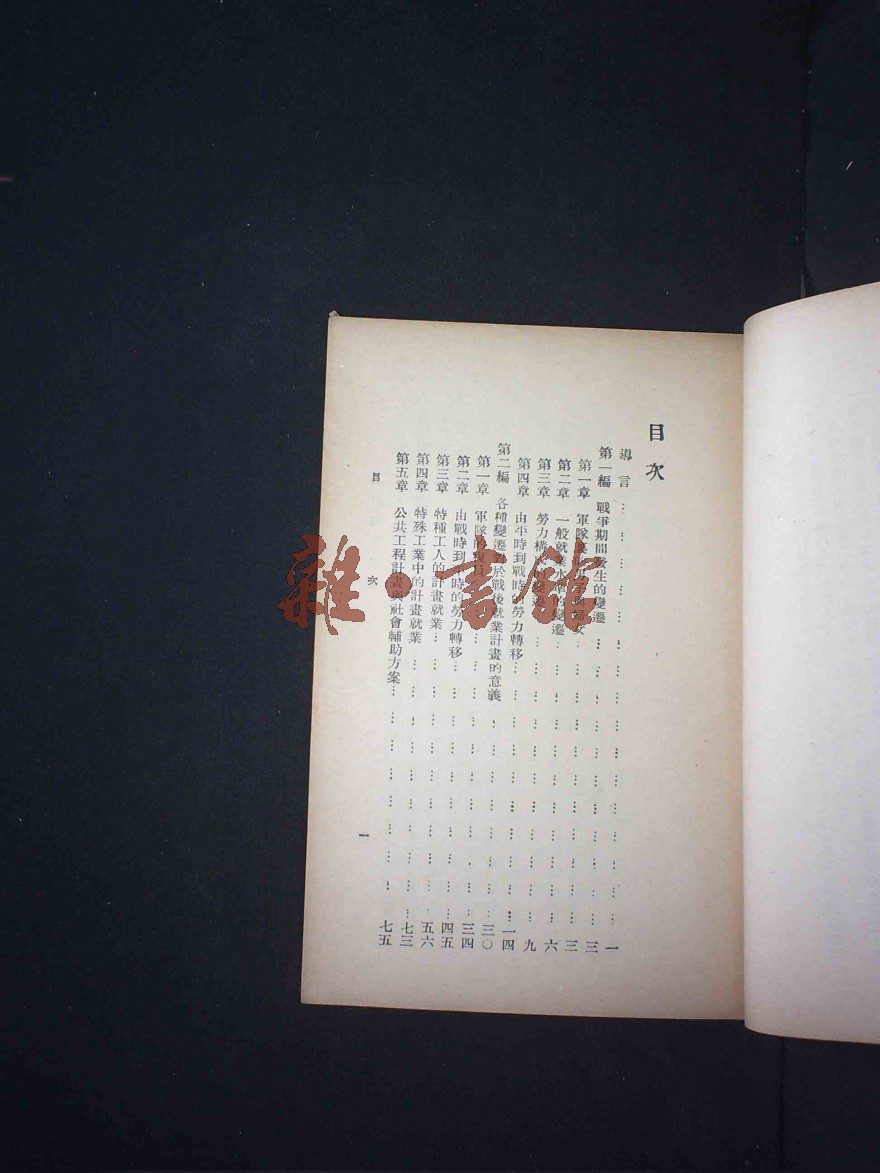 目次
導言 … 一
第一編 戰爭期間發生的變遷 … 三
第一章 軍隊 與婦女 … 三
第二章 一般就業 的變遷 … 六
第三章 勞力構 的變遷 … 九
第四章 由平時到戰時的勞力轉移 … 一四
第二編 各種變遷對於戰後就業計畫的意義 … 三〇
第一章 軍隊的復員 … 三四
第二章 由戰時到平時的勞力轉移 … 四五
第三章 特種工人的計畫就業 … 五六
第四章 特殊工業中的計畫就業 … 七三
第五章 公共工程計畫與社會輔助方案 … 七五
目次
一
雜·書館